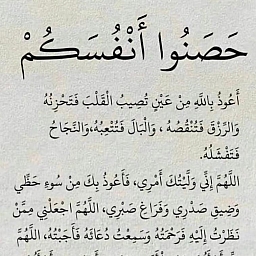 حَصَنُوا أَنْفُسَكُمْ
أَعُوذُ بِاللَّهِ مِنْ عَيْنٍ تُصِيبُ الْقَلْبَ فَتَحْزِنُهُ
وَالرِّزْقَ فَتُنْقُصُهُ ، وَالْبَالَ فَتُتْعِبُهُ،وَالنَّجَاحُ
فَتَفْشَلُهُ.
اللَّهُمَّ إِنِّي وَلَّيْتُكَ أَمْرِي، فَأَعُوذُ بِكَ مِنْ سُوءِ حَظِّي
وَضِيقِ صَدْرِي وَفَرَاغِ صَبْرِي، اللَّهُمَّ اجْعَلْنِي مِمَّنْ
نَظَرْتُ إِلَيْهِ فَرَحْمَتُهُ وَسَمِعْتُ دُعَائَهُ فَأَجَبْتُهُ، اللَّهُمَّ